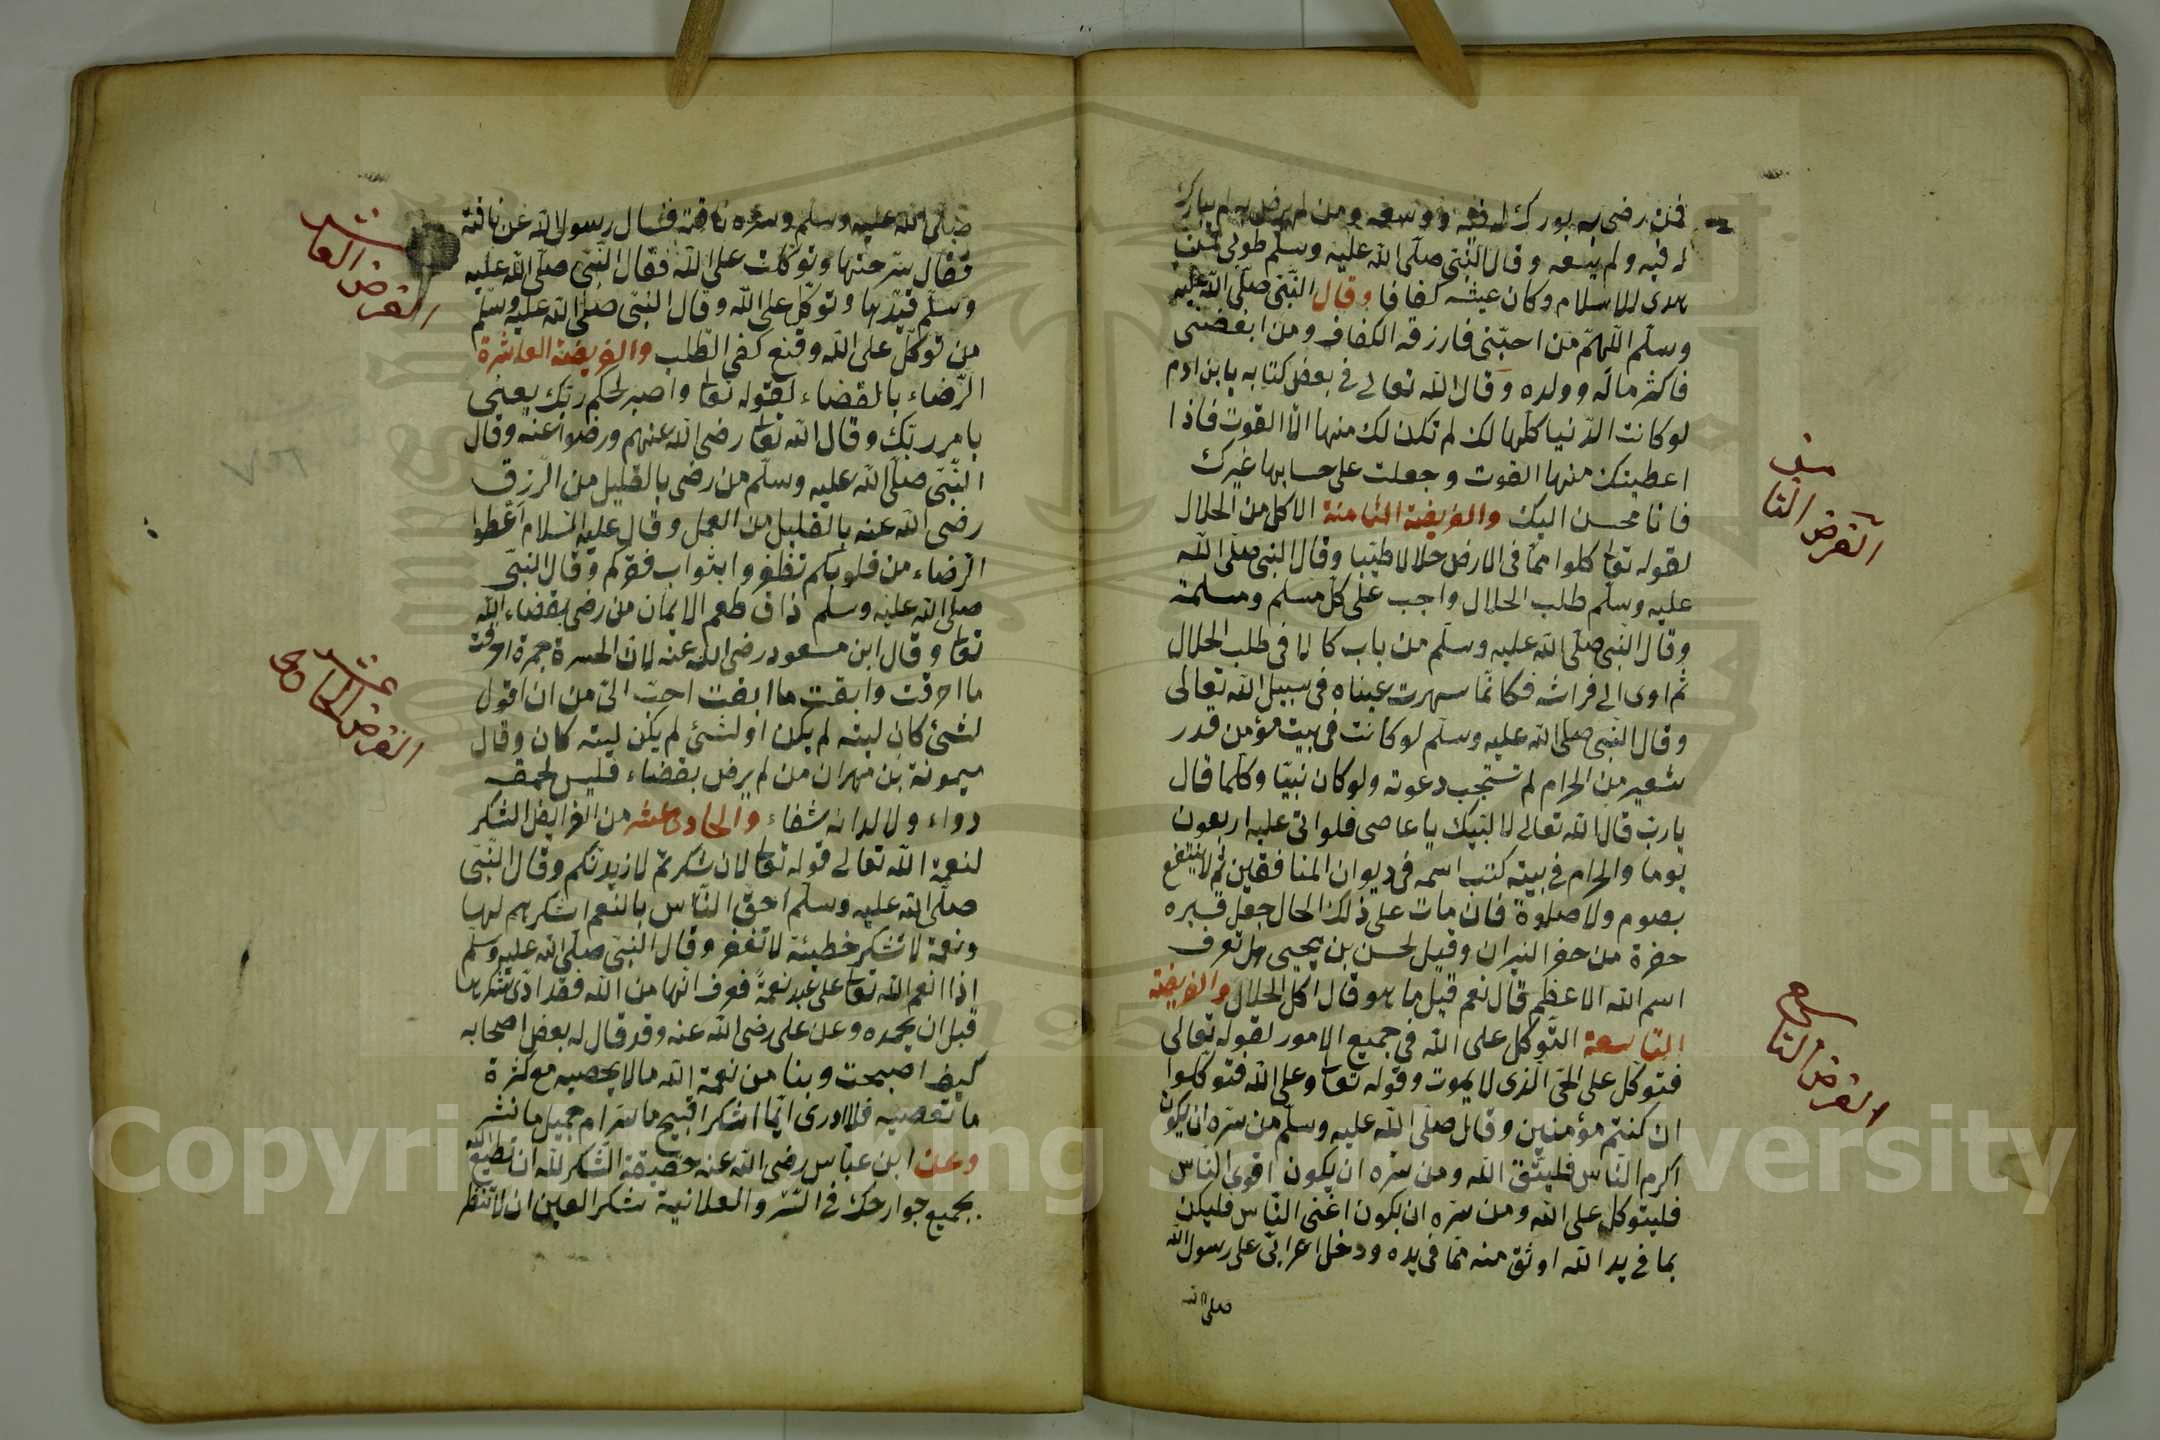 فمن رضى به بورك له فيه ووسعه ومن لم يرض به لم يبارك
له فيه ولم يسعه وقال النبى صلى الله عليه وسلم طوبى لمن
هدى للاسلام وكان عيشه كفافا وقال النبى صلى الله عليه
وسلم اللهم من احبنى فارزقه الكفاف ومن ابغضنى
فاكثر ماله وولده وقال الله تعالى فى بعض كتابه يا بن ادم
لو كانت الدنيا كلها لك لم تكن لك منها الا القوت فاذا
اعطيتك منها القوت وجعلت على حسابها غيرك
فانا محسن اليك والفريضة الثامنة الاكل من الحلال
لقوله تعا كلوا مما فى الارض حلالا طيبا وقال النبى صلى الله
عليه وسلم طلب الحلال واجب على كل مسلم ومسلمة
وقال النبى صلى الله عليه وسلم من بات كالا فى طلب الحلال
ثم اوى الى فراشه فكانما سهرت عيناه فى سبيل الله تعالى
وقال النبى صلى الله عليه وسلم لو كانت فى بيت مؤمن قدر
شعير من الحرام لم تستجب دعوته ولو كان نبيا وكلما قال
يا رب قال الله تعالى لا لبيك يا عاصى فلو اتى عليه اربعون
يوما والحرام فى بيته كتب اسمه فى ديوان المنافقين ثم لا ينتفع
بصوم ولا صلوة فان مات على ذلك الحال جعل قبره
حفرة من حفر النيران وقيل لحسن بن يحيى هل تعرف
اسم الله الاعظم قال نعم قيل ما هو قال اكل الحلال والفريضة
التاسعة التوكل على الله فى جميع الامور لقوله تعالى
فتوكل على الحى الذى لا يموت وقوله تعا وعلى الله فتوكلوا
ان كنتم مؤمنين وقال صلى الله عليه وسلم من سره ان يكون
اكرم الناس فليتق الله ومن سره ان يكون اقوى الناس
فليتوكل على الله ومن سره ان يكون اغنى الناس فليكن
بما فى يد الله اوثق منه مما فى يده ودخل اعرابى على رسول الله
صلى الله
الفرض الثامن
الفرض التاسع
صلى الله عليه وسلم وسره ناقة فسال رسول الله عن ناقته
فقال سرحتها وتوكلت على الله فقال النبى صلى الله عليه
وسلم قيدها وتوكل على الله وقال النبى صلى الله عليه وسلم
من توكل على الله وقنع كفى الطلب والفريضة العاشرة
الرضاء بالقضاء لقوله تعا واصبر لحكم ربك يعنى
بامر ربك وقال الله تعا رضى الله عنهم ورضوا عنه وقال
النبى صلى الله عليه وسلم من رضى بالقليل من الرزق
رضى الله عنه بالقليل من العمل وقال عليه السلام اعطوا
الرضاء من قلوبكم تظفروا بثواب فقركم وقال النبى
صلى الله عليه وسلم ذاق طعم الايمان من رضى بقضاء الله
تعا وقال ابن مسعود رضى الله عنه لان الحسرة جمرة احرقت
ما احرقت وابقت ما ابقت احب الى من ان اقول
لشئ كان ليته لم يكن او لشئ لم يكن ليته كان وقال
ميمونة بن مهران من لم يرض بقضاء فليس لحمقه
دواء ولا لدائه شفاء والحادى عشر من الفرايض الشكر
لنعمة الله تعالى قوله تعا لان شكرتم لازيدنكم وقال النبى
صلى الله عليه وسلم احق الناس بالنعم اشكرهم لها
ونعمة لا تشكر خطيئة لا تغفر وقال النبى صلى الله عليه وسلم
اذا انعم الله تعا على عبد نعمة فعرف انها من الله فقد ادى شكرها
قبل ان يحمده وعن على رضى الله عنه وقد قال له بعض اصحابه
كيف اصبحت وبنا من نعمة الله ما لا يحصيه مع كثرة
ما نعصيه فلا ادرى ايما اشكر اقبيح ما ستر ام جميل ما نشر
وعن ابن عباس رضى الله عنه حقيقة الشكر لله ان تطيع الله
بجميع جوارحك فى السر والعلانية شكر العين ان لا تنظر
الفرض العاشر
الفرض الحادى عشر
Copyright © King Saud University